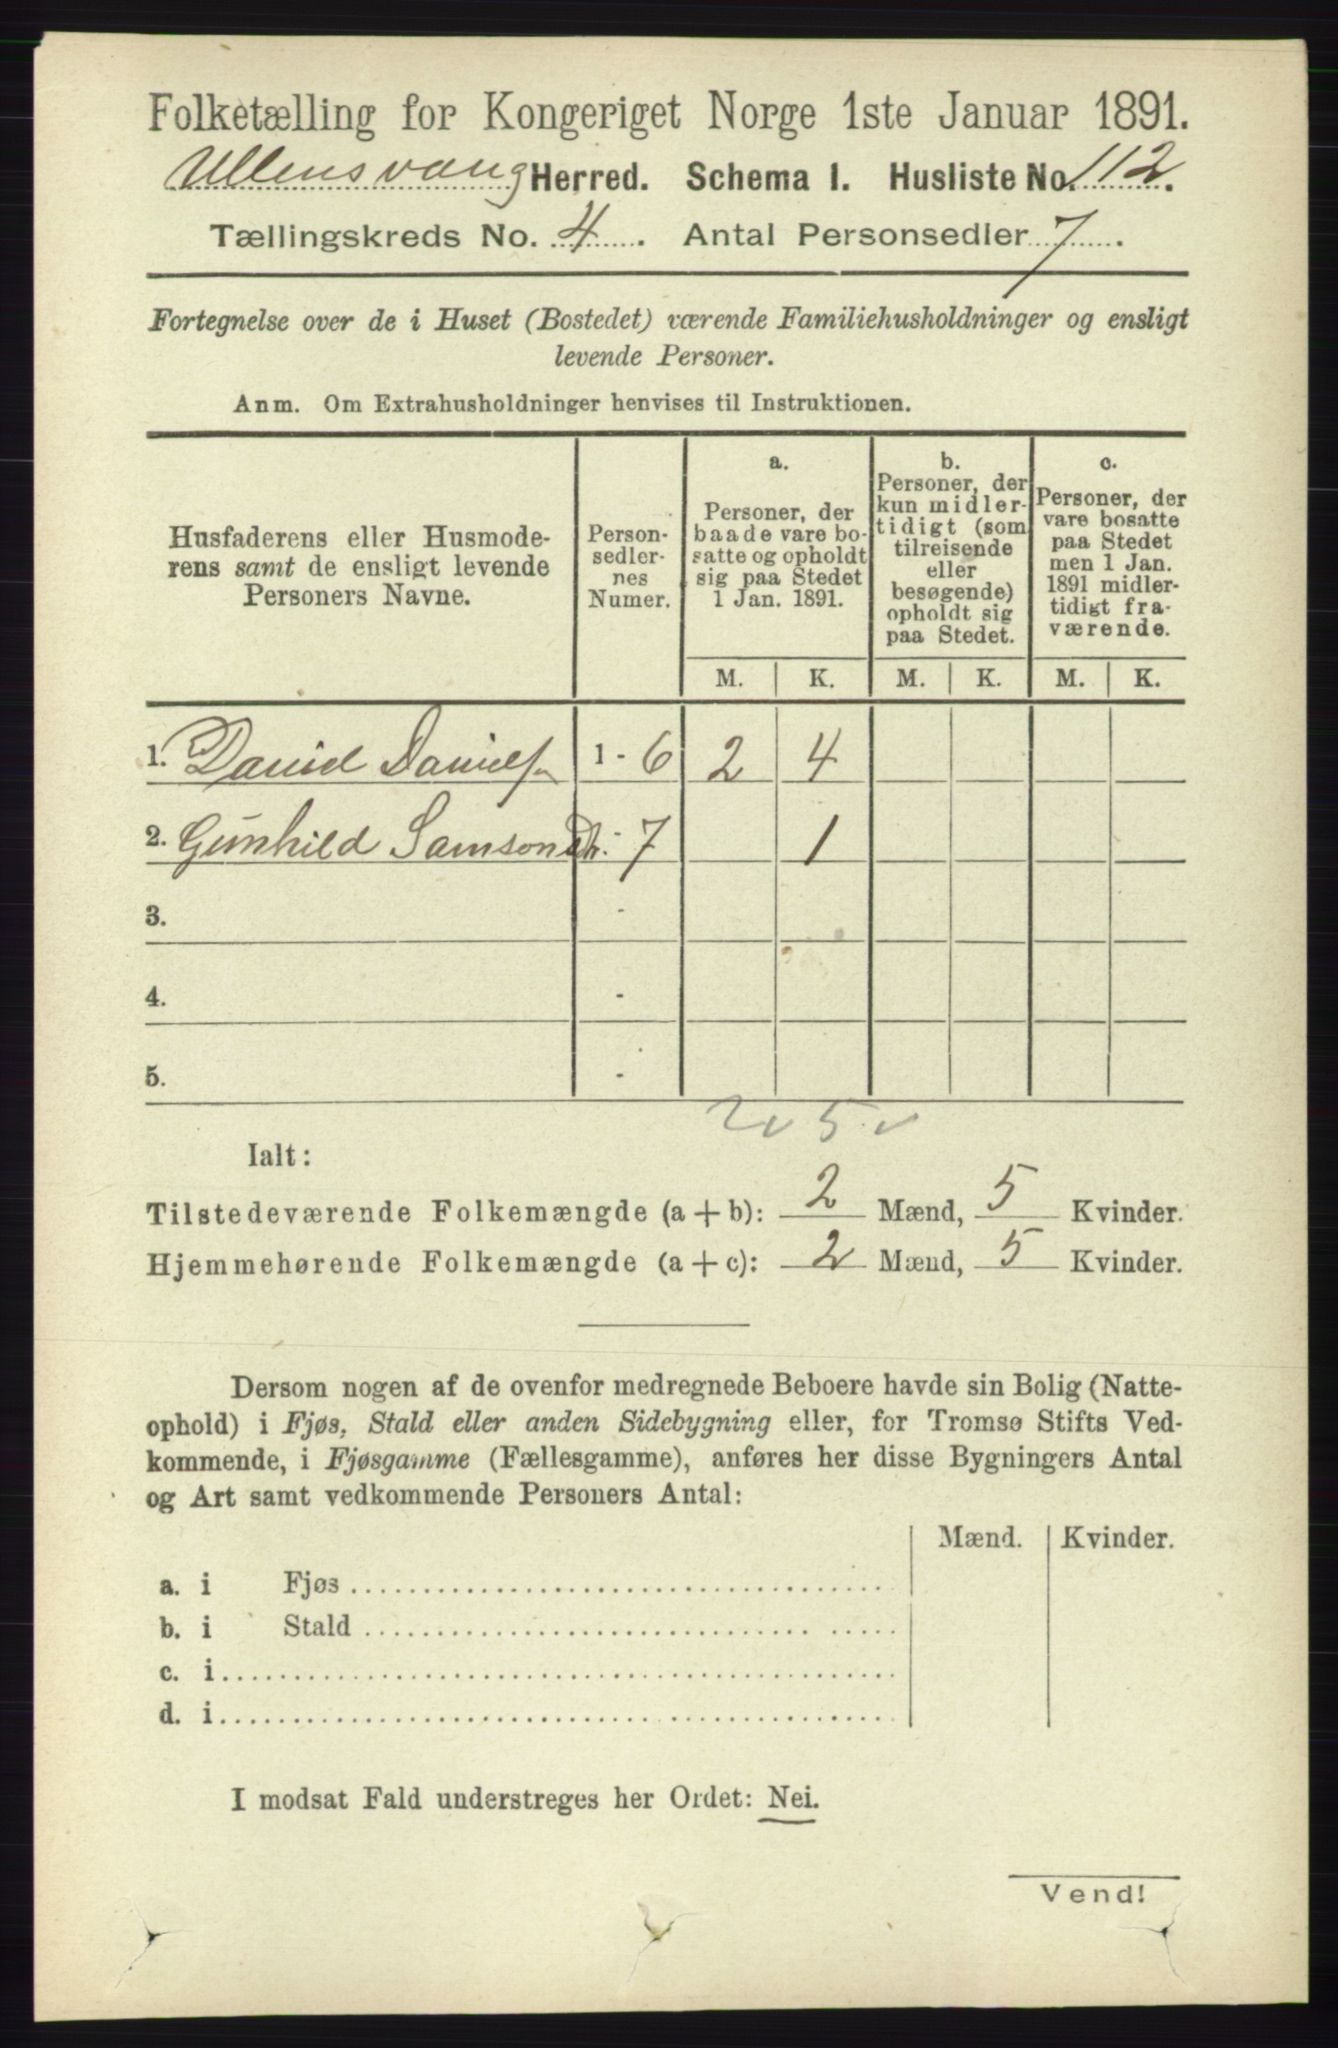 Folketælling for Kongeriget Norge 1ste Januar 1891.
Ullensvang Herred. Schema 1. Husliste No. 112.
Tællingskreds No. 4. Antal Personsedler 7.
Fortegnelse over de i Huset (Bostedet) værende Familiehusholdninger og ensligt
levende Personer.
Anm. Om Extrahusholdninger henvises til Instruktionen.
Husfaderens eller Husmode-
rens samt de ensligt levende
Personers Navne.
Person-
sedler-
nes
Numer.
a.
Personer, der
baade vare bo-
satte og opholdt
sig paa Stedet
1 Jan. 1891.
b.
Personer, der
kun midler-
tidigt (som
tilreisende
eller
besøgende)
opholdt sig
paa Stedet.
c.
Personer, der
vare bosatte
paa Stedet
men 1 Jan.
1891 midler-
tidigt fra-
værende.
M. K. M. K. M. K.
1. David Daniels. 1 - 6 2 4
2. Gunhild Samsondtr. - 7 1
3. -
4. -
5. -
2 v 5 v
Ialt:
Tilstedeværende Folkemængde (a + b): 2 Mænd, 5 Kvinder.
Hjemmehørende Folkemængde (a + c): 2 Mænd, 5 Kvinder.
Dersom nogen af de ovenfor medregnede Beboere havde sin Bolig (Natte-
ophold) i Fjøs, Stald eller anden Sidebygning eller, for Tromsø Stifts Ved-
kommende, i Fjøsgamme (Fællesgamme), anføres her disse Bygningers Antal
og Art samt vedkommende Personers Antal:
Mænd. Kvinder.
a. i Fjøs
b. i Stald
c. i
d. i
I modsat Fald understreges her Ordet: Nei.
Vend!